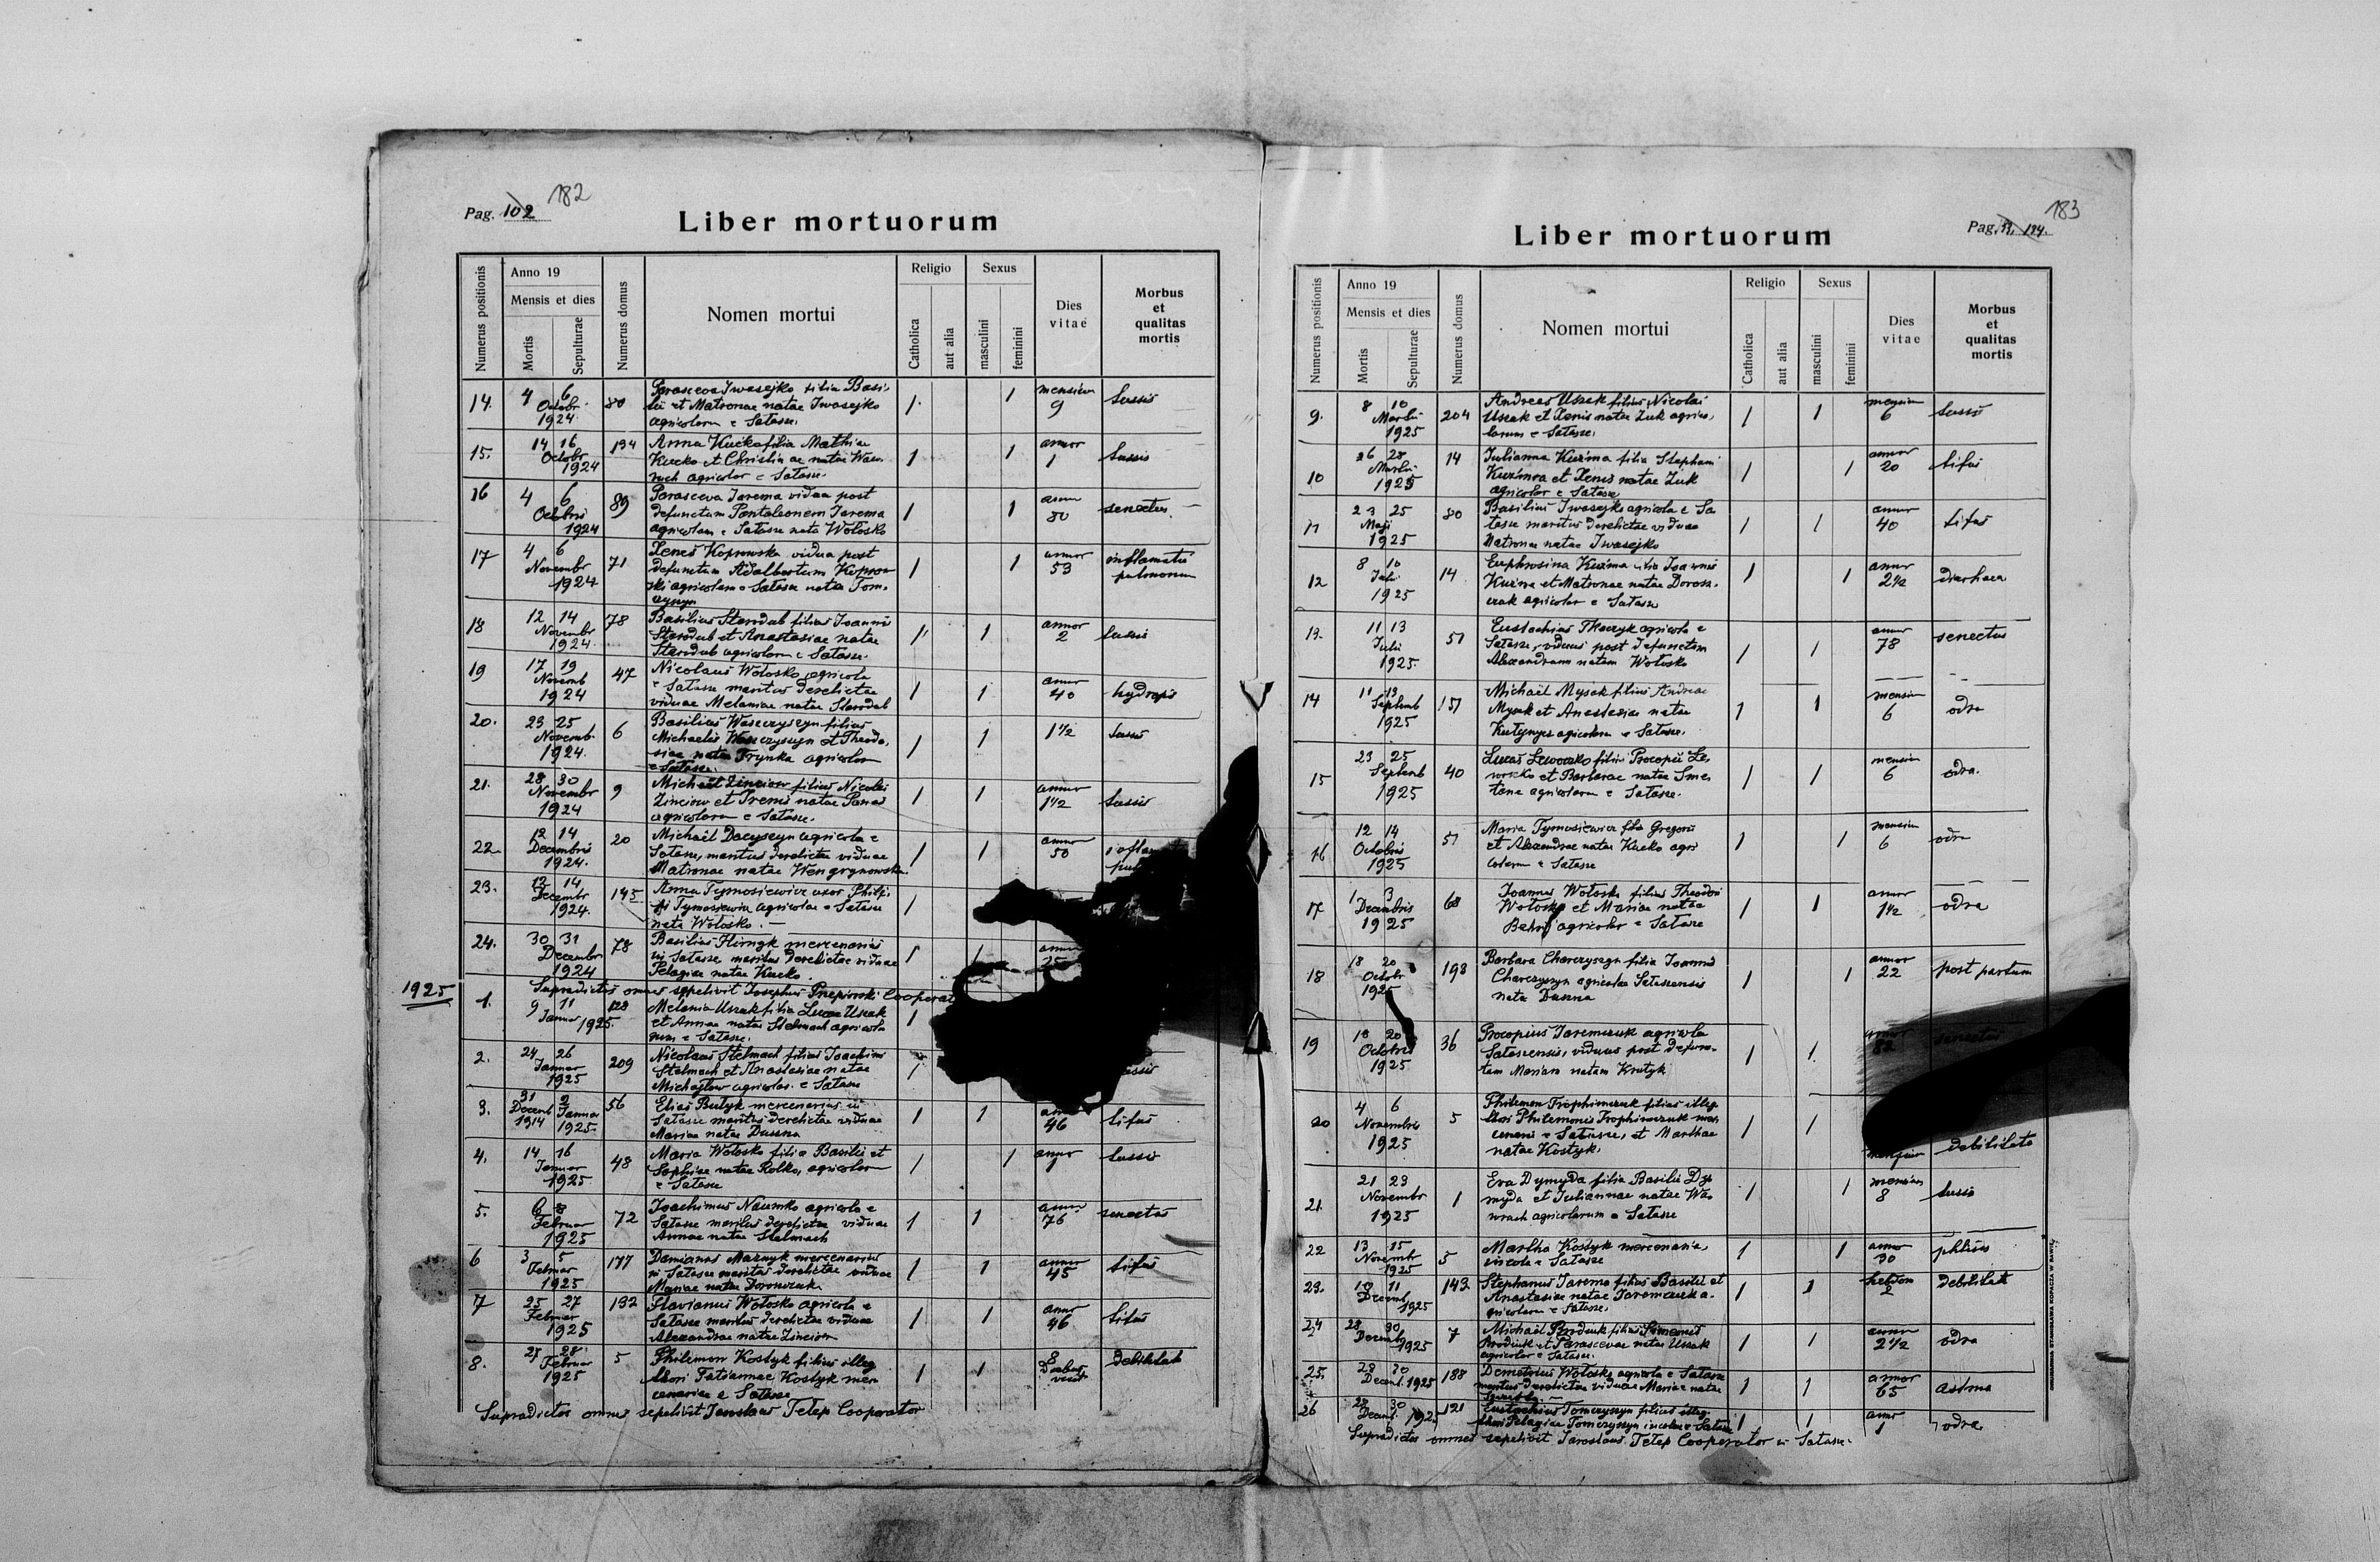 Pag. 102 182
Liber mortuorum
Numerus positionis
Anno 19
Mensis et dies
Mortis
Sepulturae
Numerus domus
Nomen mortui
Religio
Catholica
aut alia
Sexus
masculini
feminini
Dies vitae
Morbus et qualitas mortis
14. 4 6 Octobr 1924 80 Parasceva Iwasejko filia Basi-
lii et Matronae natae Iwasejko
agricolarum e Satasze.
1 1 mensium 9 tussis
15. 14 16 Octobr 1924 194 Anna Kucko filia Mathiae
Kucko et Christinae natae
agricolar e Satasze.
1 1 annor 1 tussis
16 4 6 Octobris 1924 89 Parasceva Jarema vidua post
defunctum Pantaleonem Jarema
agricolam e Satasze nata Wołosko
1 1 annor 80 senectus
17 4 6 Novembr 1924 71 vidua post
defunctum Adalbertum
agricolam e Satasze nata Tom-
czyszyn
1 1 annor 53 inflamatio
pulmonum
18 12 14 Novembr 1924 78 Basilius Starodub filius Joannis
Starodub et Anastasiae natae
Starodub agricolarum e Satasze.
1 1 annor 2 tussis
19 17 19 Novemb 1924 47 Nicolaus Wołosko agricola
e Satasze maritus derelictae
viduae Melaniae natae Starodub
1 1 annor 40 hydrops
20. 23 25 Novemb. 1924. 6 Basilius filius
Michaelis et Theodo-
siae natae Frynka agricolar
e Satasze.
1 1 1½ tussis
21. 28 30 Novembr 1924 9 Michaël Zinciow filius Nicolai
Zinciow et Irenis natae Panas
agricolarum e Satasze.
1 1 annor 1½ tussis
22. 12 14 Decembris 1924. 20 Michaël Dacyszyn agricola e
Satasze, maritus derelictae viduae
Matronae natae Wengrynowska.
1 1 annor 50
23. 12 14 Decembr 1924. 145 Anna Tymosiewicz uxor Philip-
pi Tymosiewicz agricolae e Satasze
nata Wołosko.
1
24. 30 31 Decembr 1924 78 Basilius Hirnyk mercenarius
in Satasze maritus derelictae viduae
Pelagiae natae Kucko.
1 1 annor 25
Supradictos omnes sepelivit Josephus
1925
1. 9 11 Januar 1925. 128 Melania Uszak filia Lucae Uszak
et Annae natae Stelmach agricola
rum e Satasze.
1
2. 24 26 Januar 1925 209 Nicolaus Stelmach filius Joachimi
Stelmach et Anastasiae natae
Michajlow agricolar. e Satasze
1
3. 31 Decemb 1914 2 Januar 1925. 56 Elias Butyk mercenarius in
Satasze maritus derelictae viduae
Mariae natae Duszna
1 1 46 tifus
4. 14 16 Januar 1925 48 Maria Wołosko filia Basilii et
Sophiae natae Rolko, agricolar
e Satasze
1 1 annor 1 tussis
5. 6 8 Februar 1925 72 Joachimus Naumko agricola e
Satasze maritus derelictae viduae
Annae natae Stelmach
1 1 annor 76 senectus
6 3 5 Februar 1925 177 Damianus Mazuyk mercenarius
in Satasze maritus derelictae viduae
Mariae natae
1 1 annor 45 tifus
7 25 27 Februar 1925 192 Flavianus Wołosko agricola e
Satasze maritus derelictae viduae
Alexandrae natae Zinciow
1 1 annor 46 tifus
8. 27 28 Februar 1925 5 Philemon Kostyk filius illeg
thori Tatiannae Kostyk mer
cenariae e Satasze
1 1 debilitat
Supradictos omnes sepelivit Jaroslaus Telep Cooperator
183
Pag. 184.
Liber mortuorum
Numerus positionis
Anno 19
Mensis et dies
Mortis
Sepulturae
Numerus domus
Nomen mortui
Religio
Catholica
aut alia
Sexus
masculini
feminini
Dies vitae
Morbus et qualitas mortis
9. 8 10 Martii 1925 204 Andreas Uszak filius Nicolai
Uszak et Xenis natae Zuk agrico-
larum e Satasze.
1 1 mensium 6 tussis
10 26 28 Martii 1925 14 Julianna Kuzma filia Stephani
Kuzma et Xenis natae Zuk
agricolar e Satasze
1 1 annor 20 tifus
11 23 25 Maji 1925 80 Basilius Iwasejko agricola e Sa
tasze maritus derelictae viduae
Matronae natae Iwasejko
1 1 annor 40 tifus
12 8 10 Julii 1925 14 Euphrosina Kuzma filia Joannis
Kuzma et Matronae natae Dorosz-
czak agricolar e Satasze
1 1 annor 2½ diarhaea
13. 11 13 Julii 1925. 51 Eustachius Tkaczyk agricola e
Satasze, viduus post defunctam
Alexandram natam Wołosko
1 1 annor 78 senectus
14 11 13 Septemb 1925 151 Michaël Mysak filius Andreae
Mysak et Anastasiae natae
agricolarum e Satasze.
1 1 mensium 6 odra
15 23 25 Septemb 1925 40 Lucas filius Procopii
et Barbarae natae Sme
tana agricolarum e Satasze.
1 1 mensium 6 odra.
16 12 14 Octobris 1925 51 Maria Tymosiewicz filia Gregorii
et Alexandrae natae Kucko agri
colarum e Satasze
1 1 mensium 6 odra
17 1 3 Decembris 1925 68 Joannes Wołosko filius Theodori
Wołosko et Mariae natae
agricolar e Satasze
1 1 annor 1½ odra
18 18 20 Octobr 1925 198 Barbara Charczyszyn filia Joannis
Charczyszyn agricolae Sataszensis
nata Duszna
1 1 annor 22 post partum
19 18 20 Octobris 1925 36 Procopius Jaremczuk agricola
Sataszensis, viduus post defunc-
tam Mariam natam Krutyk
1 1 annor 82 senectus
20 4 6 Novembris 1925 5 Philemon Trophimczuk filius illeg
thori Philemonis Trophimczuk mer-
cenarii e Satasze, et Marthae
natae Kostyk.
1 1 debilitate
21. 21 23 Novembr 1925 1 Eva Dymyda filia Basilii Dy-
myda et Juliannae natae
agricolarum e Satasze
1 1 mensium 8 tussis
22 13 15 Novembr 1925 5 Martha Kostyk mercenaria,
incola e Satasze
1 1 annor 30 phtisis
23. 10 11 Decemb 1925 143 Stephanus Jarema filius Basilii et
Anastasiae natae Jaremczuk a-
gricolarum e Satasze.
1 1 hebdom 2 debilitate
24 28 30 Decemb 1925 7 Michaël Brodiuk filius Simeonis
Brodiuk et Parascevae natae Uszak
agricolar e Satasze.
1 1 annor 2½ odra
25. 28 30 Decemb. 1925 188 Demetrius Wołosko agricola e Satasze
maritus derelictae viduae Mariae natae
1 1 annor 65 astma
26 28 30 Decemb. 192 121 Eustachius Tomczyszyn filius illeg
thori Pelagiae Tomczyszyn incolae e Satasze
1 1 annor 1 odra
Supradictos omnes sepelivit Jaroslaus Telep Cooperator in Satasze.
DRUKARNIA STANISŁAWA KOPACZA W RAWIE